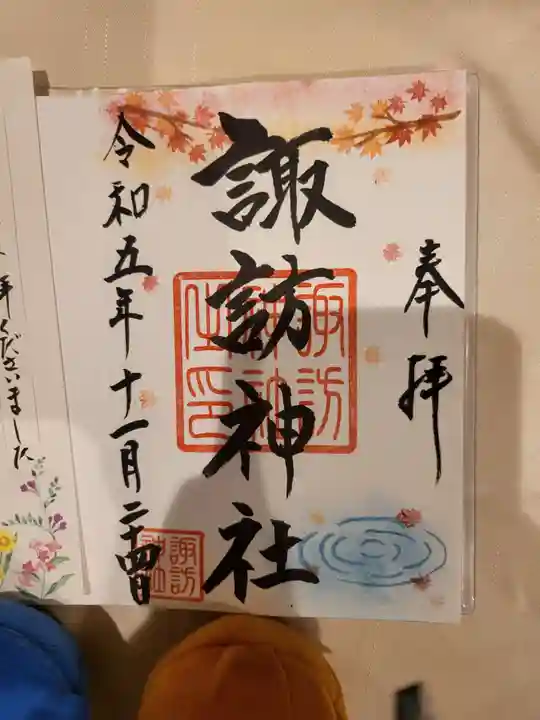 奉拝
諏訪神社
諏訪神社印
令和五年十一月二十四日
諏訪神社
拝くださいました